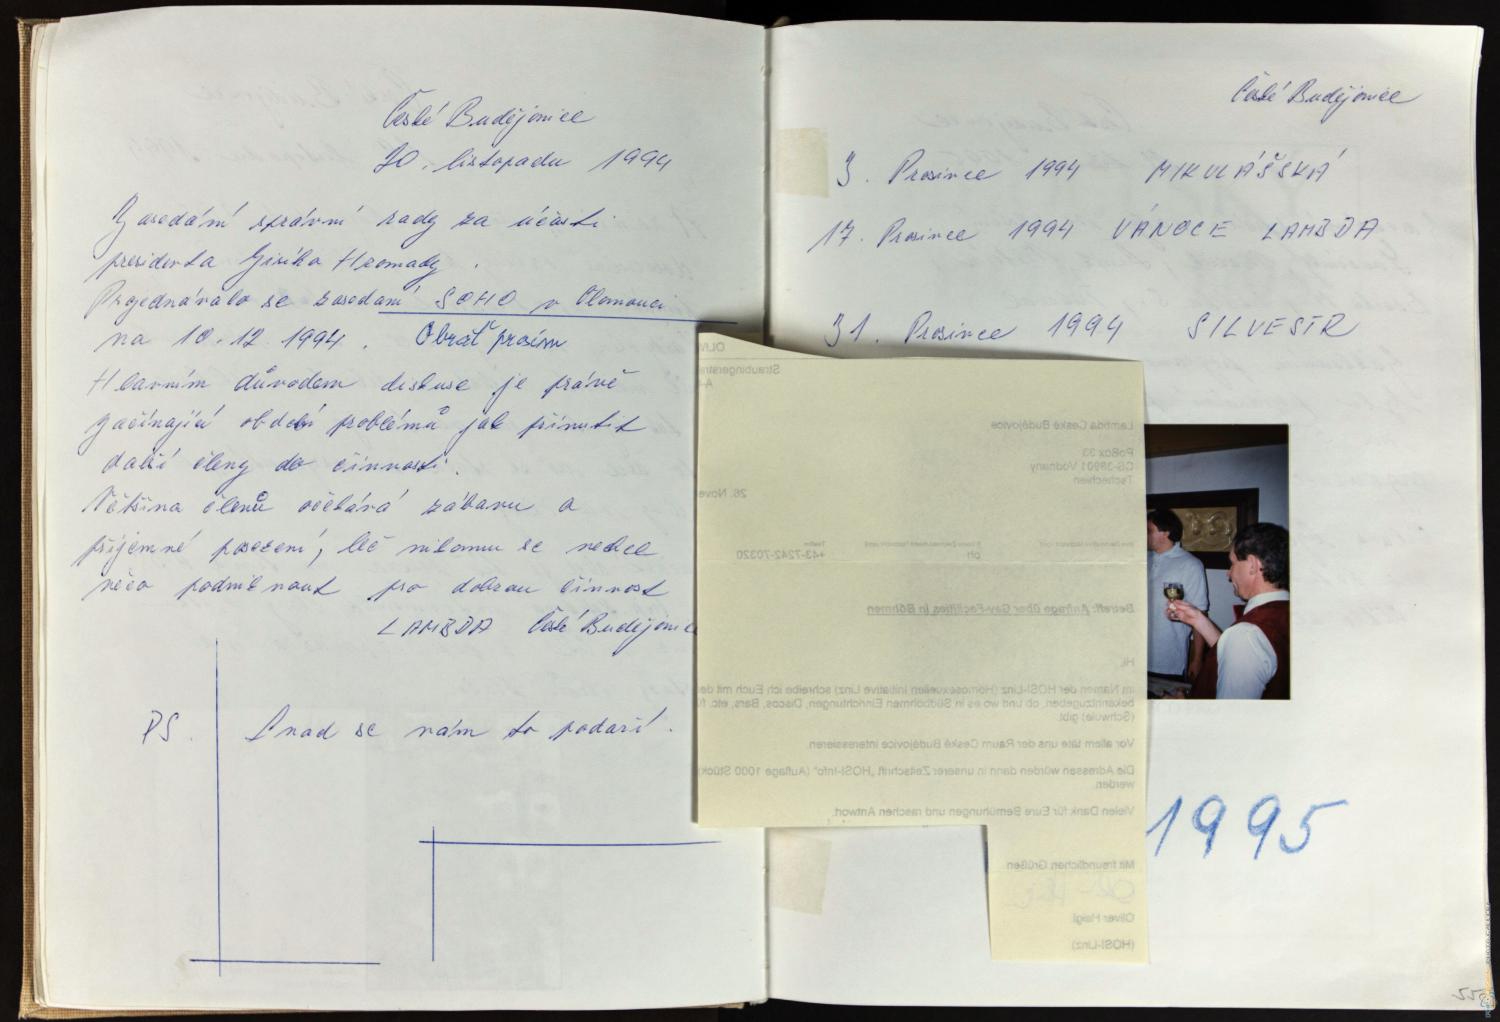 České Budějovice
20. listopadu 1994
Zasedání správní rady za účasti
presidenta Jiřího Hromady.
Projednávalo se zasedání SOHO v Olomouci
na 10.12.1994. Obrať prosím
Hlavním důvodem diskuse je právě
začínající období problémů jak přinutit
další členy do činnosti.
Většina členů očekává zábavu a
příjemné posezení, leč nikomu se nechce
něco podniknout pro dobrou činnost
LAMBDA České Budějovice
PS. Snad se nám to podaří.
České Budějovice
3. Prosince 1994 MIKULÁŠSKÁ
17. Prosince 1994 VÁNOCE LAMBDA
31. Prosince 1994 SILVESTR
Straubingerstra
A-
Lambda České Budějovice
PoBox 33
CS-38901 Vodnany
Tschechien
26. Nove
+43-7242-70320
Betreff: Anfrage über Gay-Facilities in Böhmen
Hi,
im Namen der HOSI-Linz (Homosexuellen Initiative Linz) schreibe ich Euch mit der
bekanntzugeben, ob und wo es in Südböhmen Einrichtungen, Discos, Bars, etc. fü
(Schwule) gibt.
Vor allem täte uns der Raum České Budějovice interessieren.
Die Adressen würden dann in unserer Zeitschrift „HOSI-Info“ (Auflage 1000 Stück)
werden.
Vielen Dank für Eure Bemühungen und raschen Antwort.
Mit freundlichen Grüßen
Oliver Haigl
(HOSI-Linz)
1995